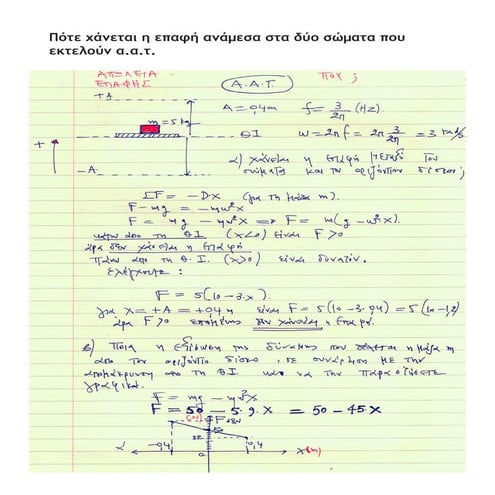 Πότε χάνεται η επαφή ανάμεσα στα δύο σώματα που
εκτελούν α.α.τ.
ΑΠΩΛΕΙΑ
ΕΠΑΦΗΣ
Α.Α.Τ.
ΠΟΥ;
+A
A = 0,4m f = 3/2π (Hz)
m = 5 kg
ΘΙ ω = 2πf = 2π 3/2π = 3 rad/s
+
-A
α) χάνεται η επαφή μεταξύ του
σώματος και του οριζόντιου δίσκου;
ΣF = -Dx (για τη μάζα m).
F - mg = -mω²x
F = mg - mω²x => F = m(g - ω²x).
κάτω από τη ΘΙ (x<0) είναι F>0
άρα δεν χάνεται η επαφή
Πάνω από τη Θ.Ι. (x>0) είναι δυνατόν.
Ελέγχουμε:
F = 5(10 - 3·x).
για x = +A = +0,4m είναι F = 5(10 - 3·0,4) = 5(10 - 1,2)
άρα F>0 επομένως δεν χάνεται η επαφή.
β) Ποια η εξίσωση της δύναμης που δέχεται η μάζα m
από τον οριζόντιο δίσκο, σε συνάρτηση με την
απομάκρυνση από τη ΘΙ και να την παραστήσετε
γραφικά.
F = mg - mω²x
F = 50 - 5·9·x = 50 - 45x
(N)
F
32
-0,4
0
0,4
x(m)